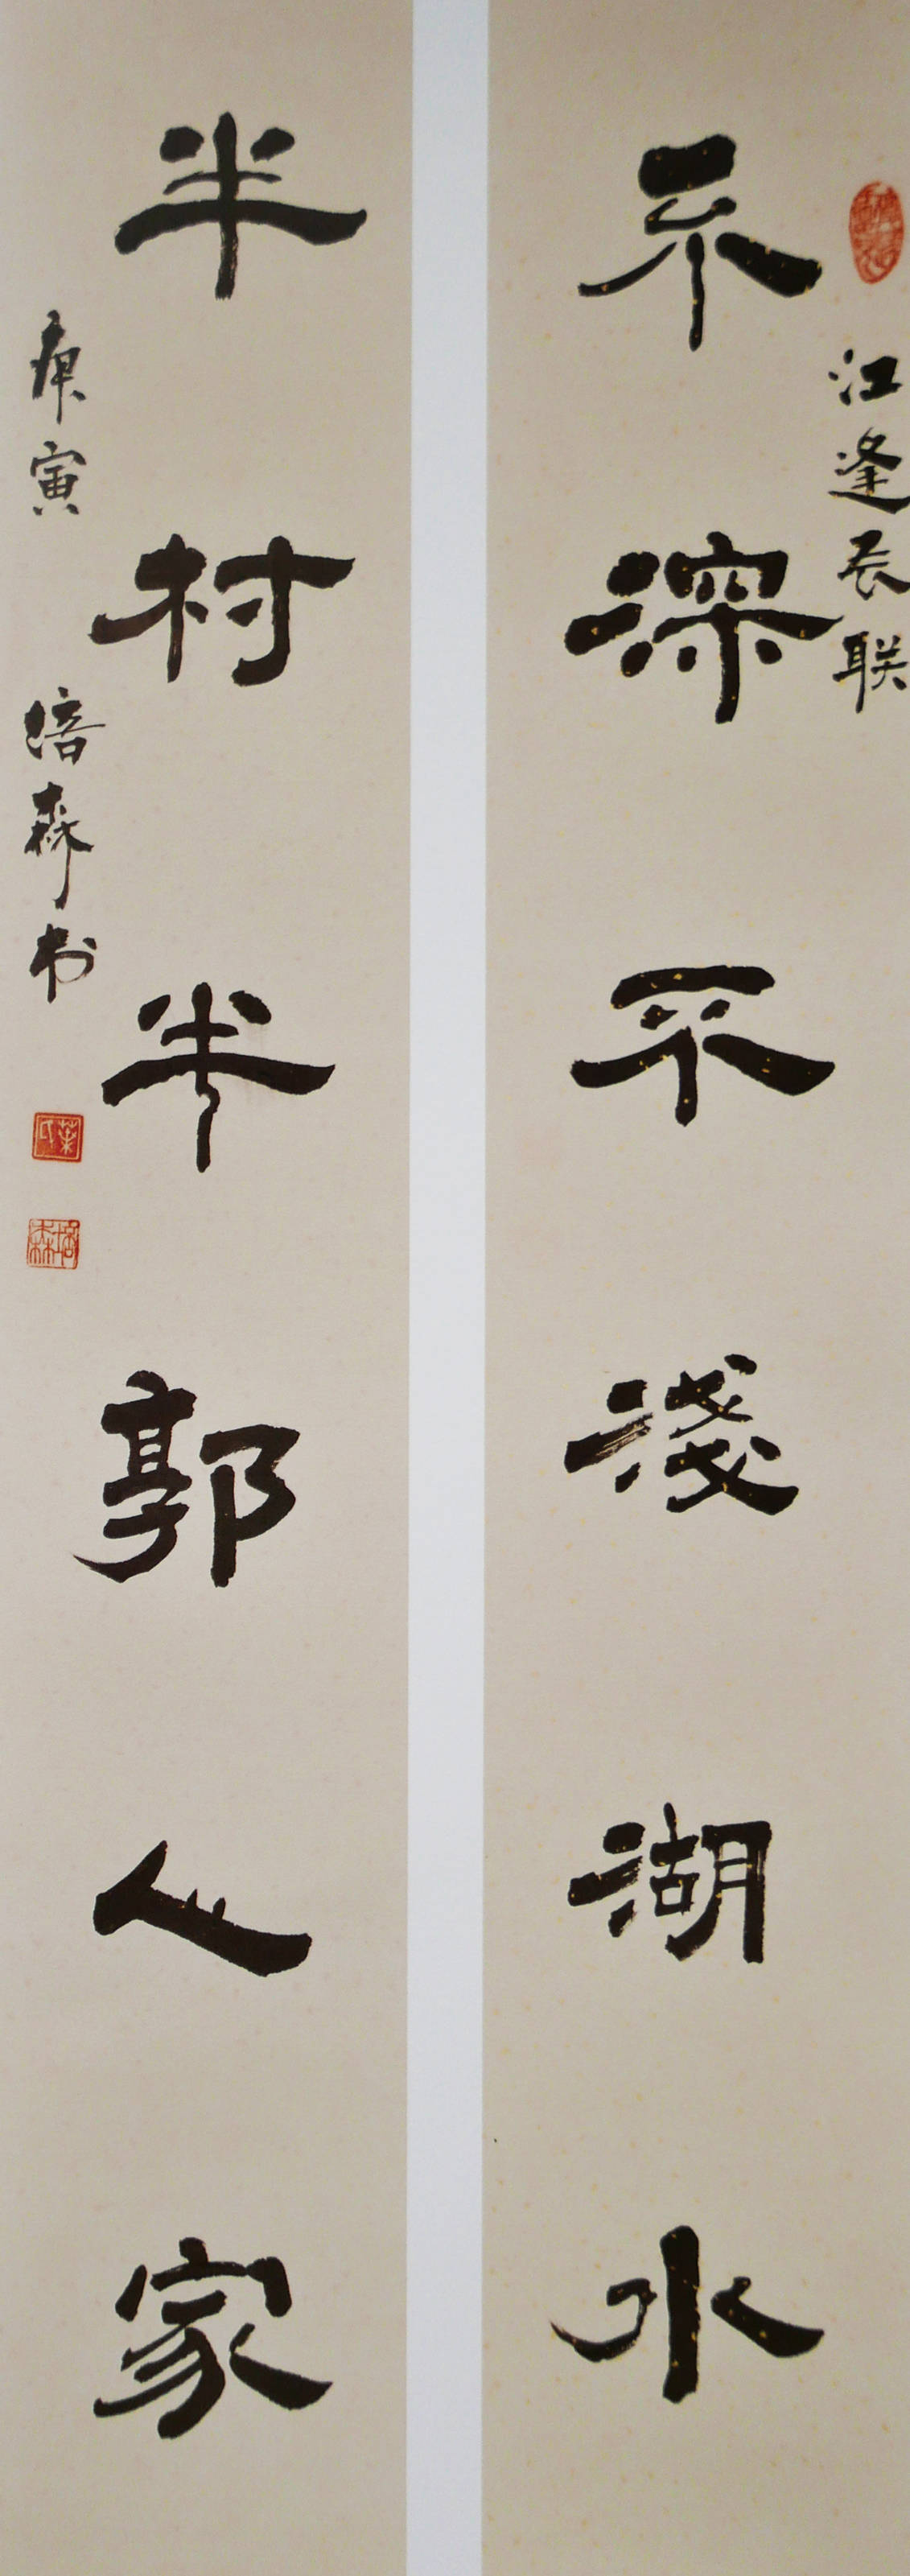 江逢辰联
不深不淺湖水
半村半郭人家
庚寅
培森书
葉氏
培森